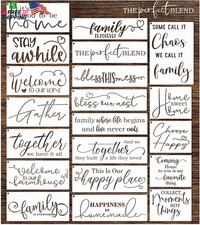 FREE
to be
home
STAY
awhile
Welcome
TO OUR HOME
Gather
together
we have it all
Welcome
TO OUR
farmhouse
family
IS EVERYTHING
family
IS FOREVER
THE perfect BLEND
blessTHISmess
bless our nest
family where life begins
and love never ends
And so
together
they built a life they loved
This Is Our
happy place
HAPPINESS
is
homemade
THE perfect BLEND
SOME CALL IT
Chaos
WE CALL IT
family
Home
sweet
Home
Choose
Happy
Coming
Home
to you is my
favorite
thing
COLLECT
Moments
NOT
Things